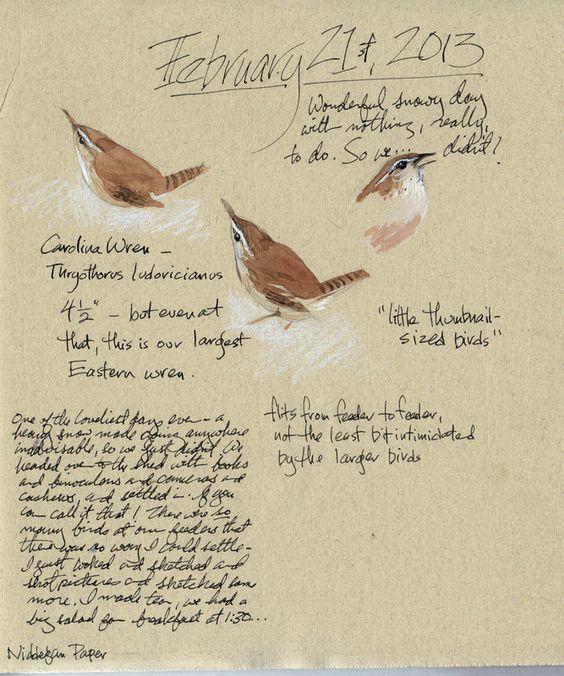 February 21st, 2013
Wonderful snowy day
with nothing, really,
to do. So we... didn't!
Carolina Wren –
Thryothorus ludovicianus
4½" – but even at
that, this is our largest
Eastern wren.
"little thumbnail-
sized birds"
flits from feeder to feeder,
not the least bit intimidated
by the larger birds
One of the loveliest days ever – a
heavy snow made going anywhere
inadvisable, so we just didn't. We
headed over to the shed with books
and binoculars and cameras and
cashews, and settled in. If you
can call it that! There were so
many birds at our feeders that
there was no way I could settle –
I just looked and sketched and
shot pictures and sketched some
more. I made tea, we had a
big salad for breakfast at 1:30...
Niddegan Paper